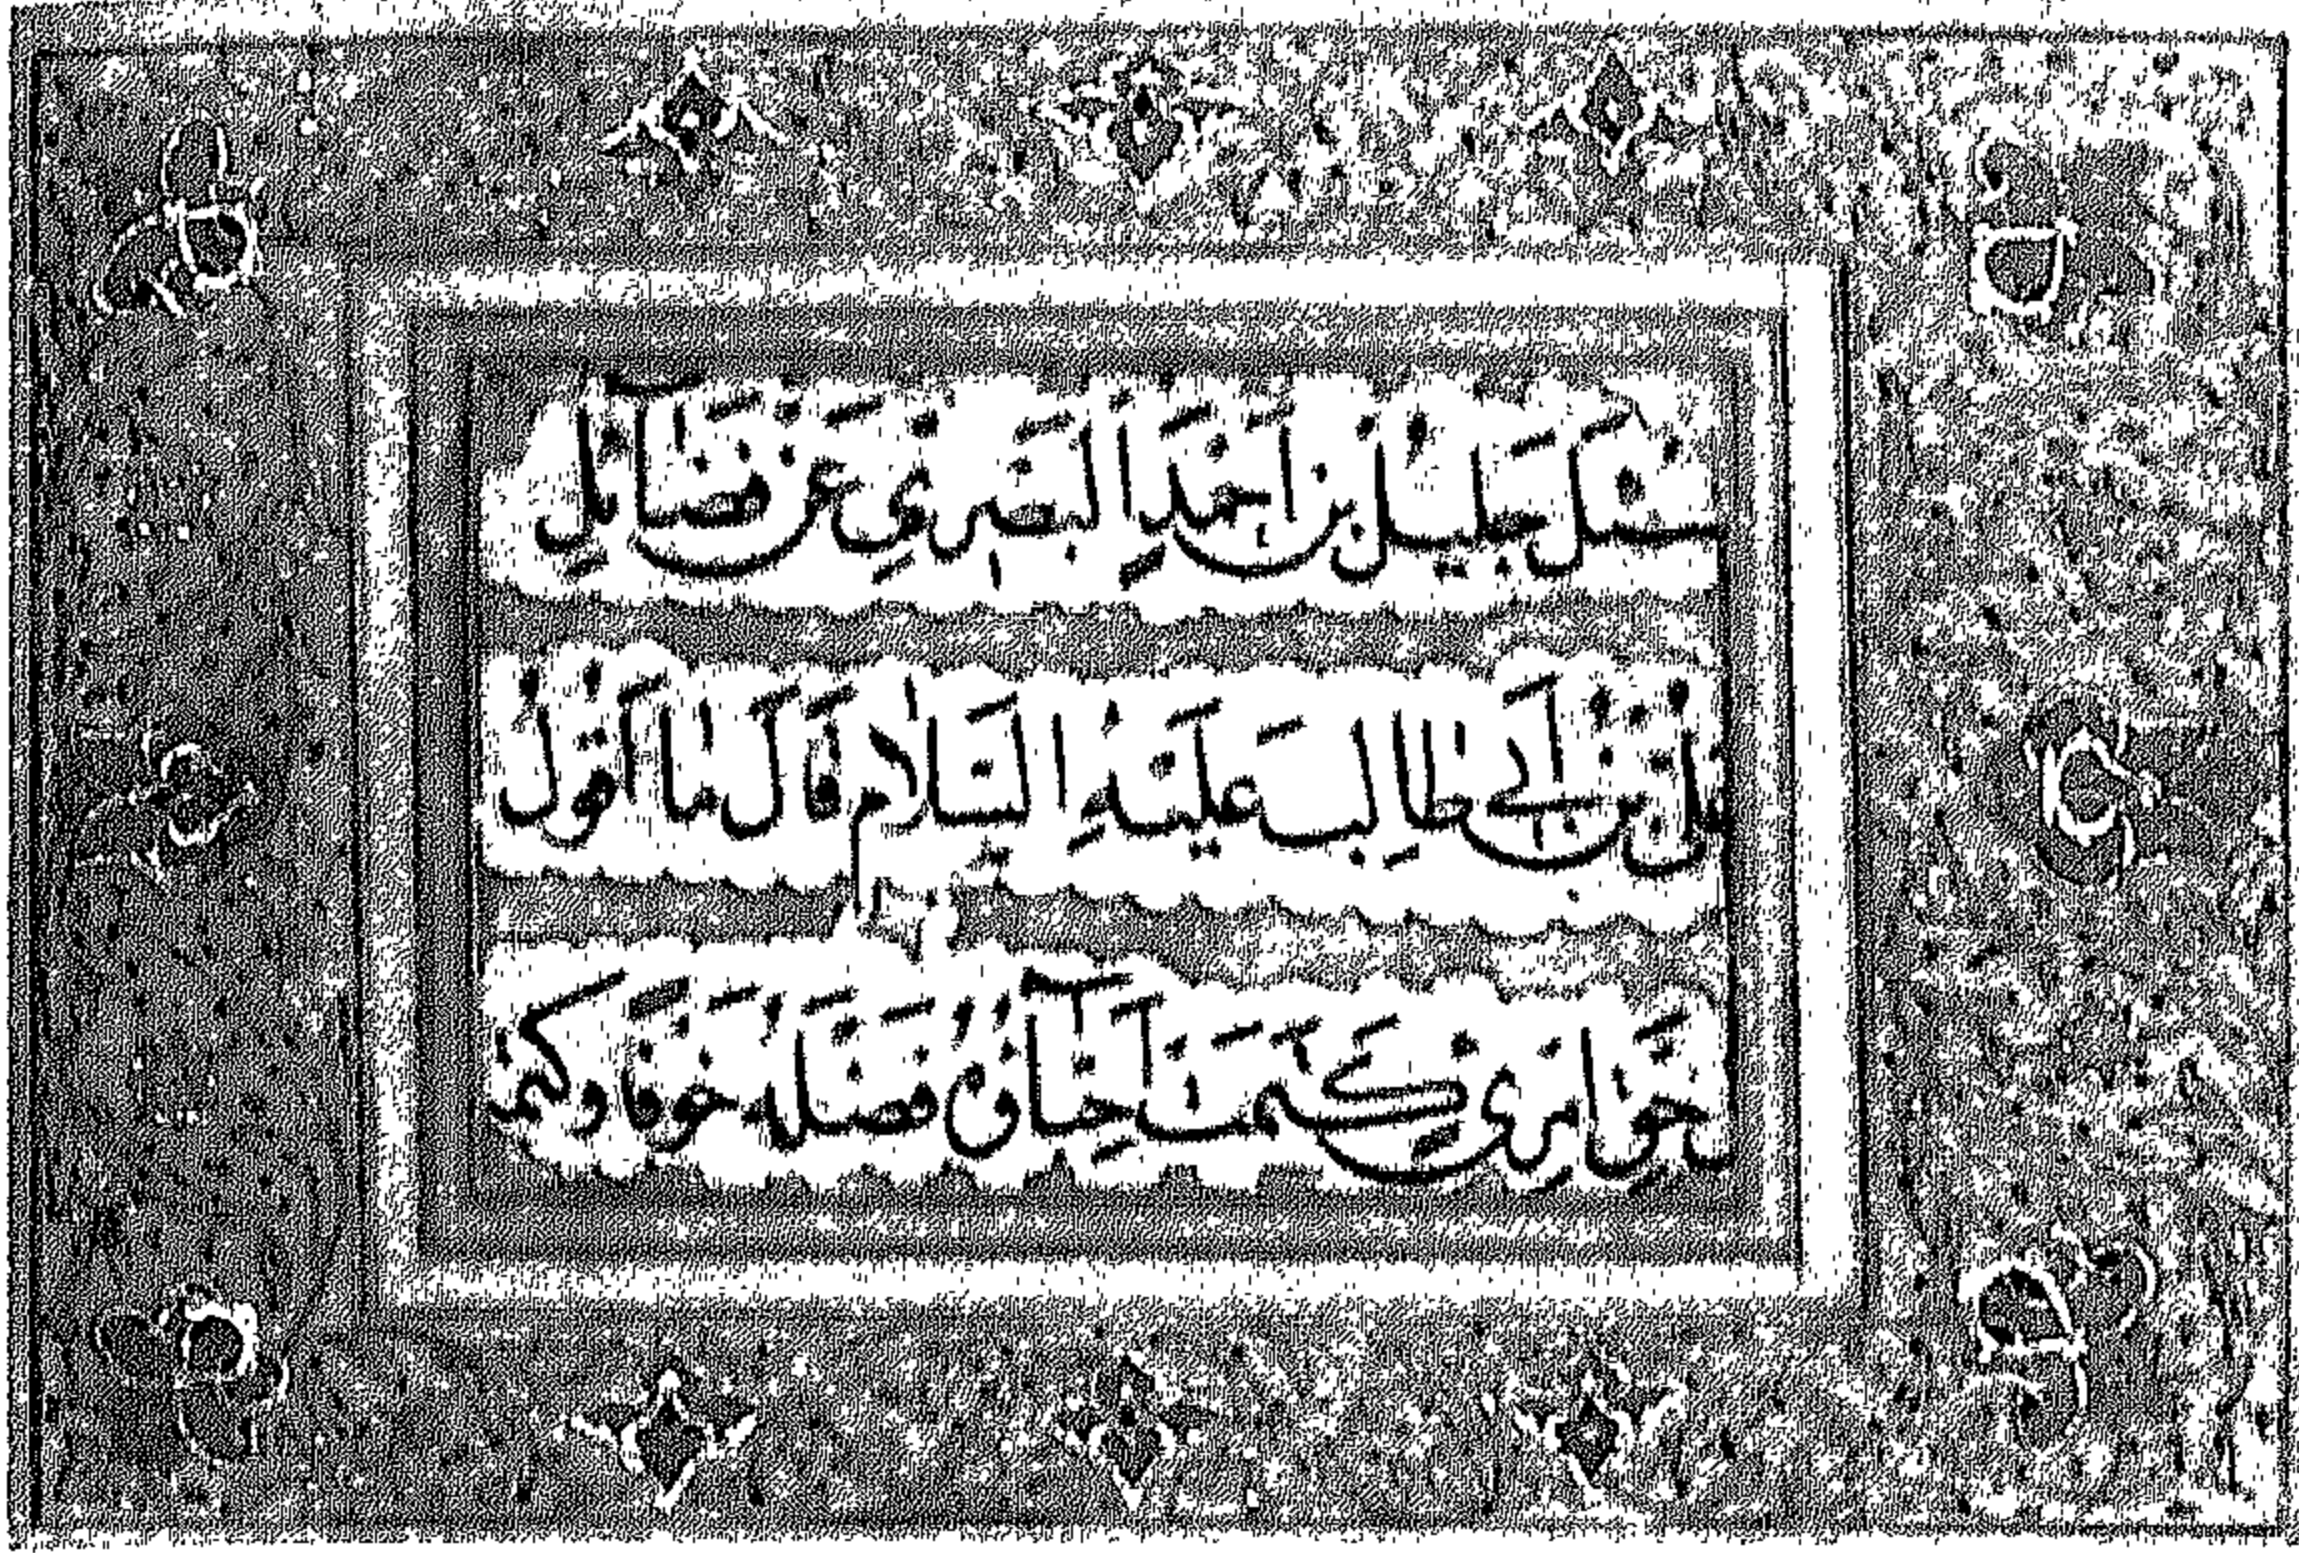 سئل خليل بن احمد البصري عن فضآئل
علي بن ابي طالب عليه السلام قال ما اقول
حق امرئ كتمت احبآؤه فضله خوفا وكتم